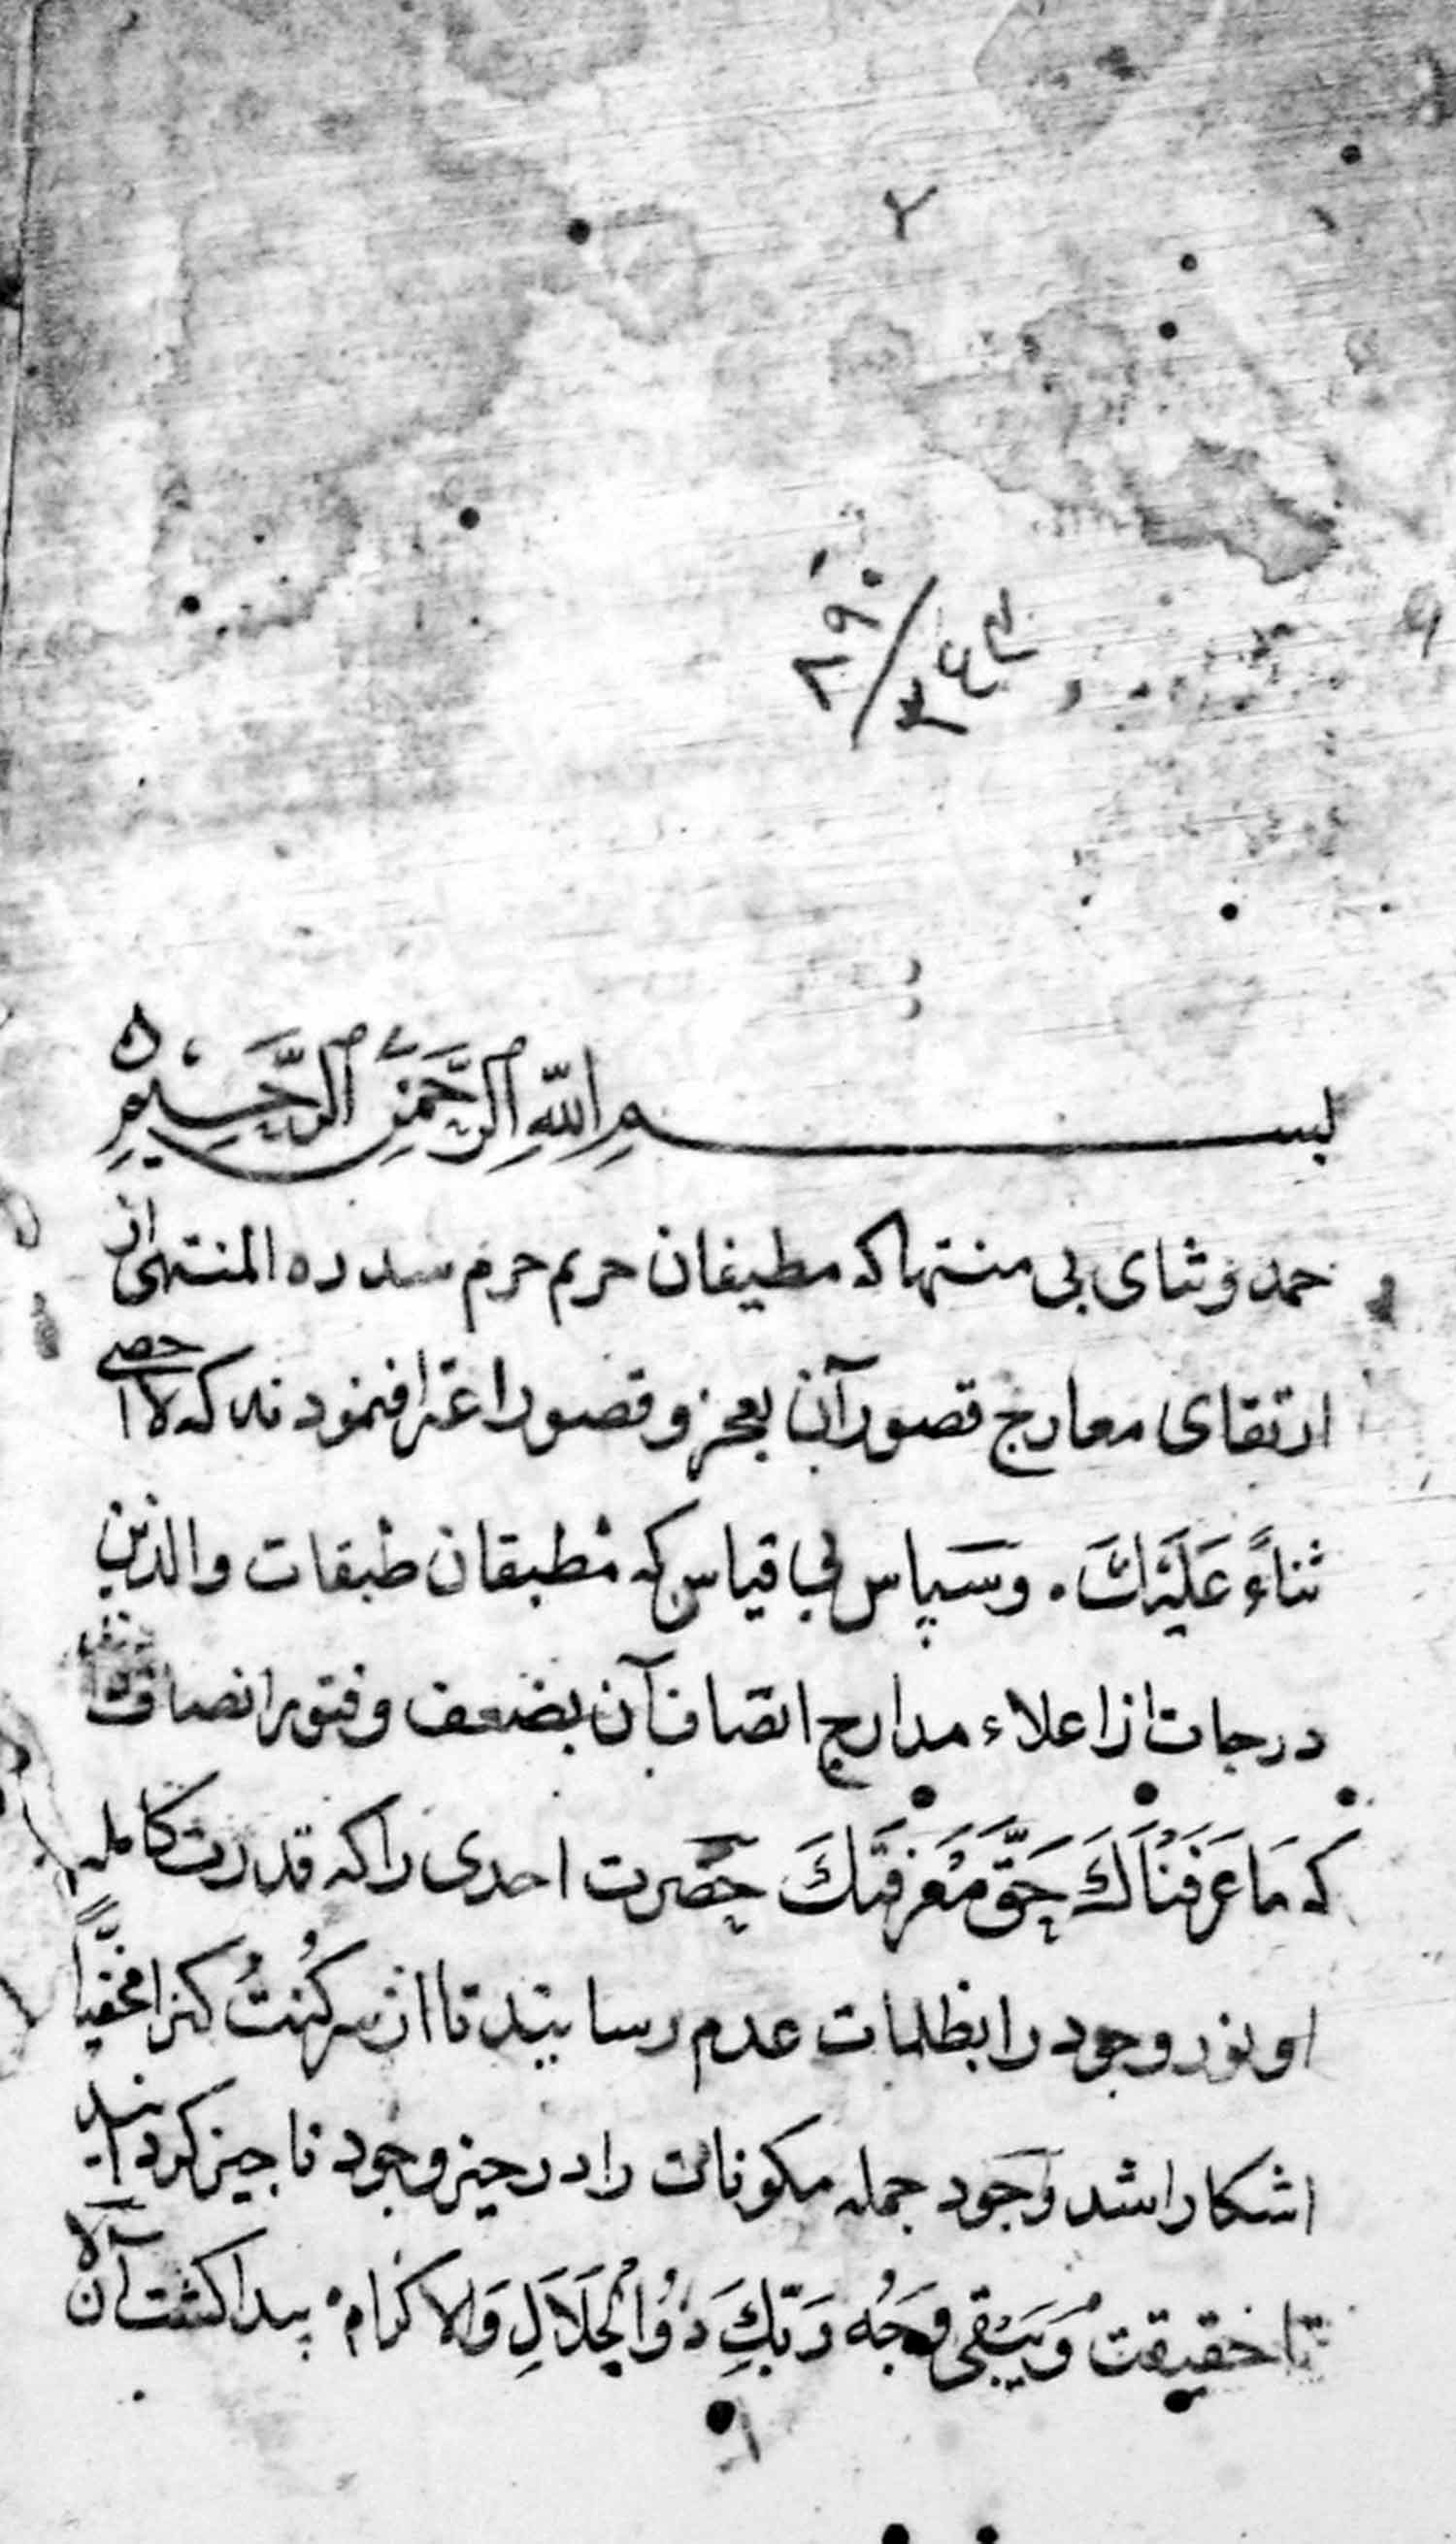 ۲
بسم الله الرحمن الرحيم
حمد و ثنای بی منتها که مطیفان حریم حرم سدره المنتهی از
ارتقای معارج قصور آن بعجز و قصور اعتراف نمودند که لا احصی
ثناءً عَلَیْكَ. وسپاس بی قیاس که مطبقان طبقات والذین
درجات از اعلاء مدارج اتصاف آن بضعف و فتور انصاف
که مَا عَرَفْنَاكَ حَقَّ مَعْرِفَتِكَ حضرت احدی را که قدرت کامله
او نور وجود را بظلمات عدم رسانید تا از سر کُنتُ کنزا مخفیّاً
اشکارا شد وجود جمله مکونات را در حیز وجود ناچیز کردانید
تا حقیقت وَیَبْقی وَجْهُ رَبِّكَ ذُو الْجَلَالِ وَالاكرام پیدا کشت